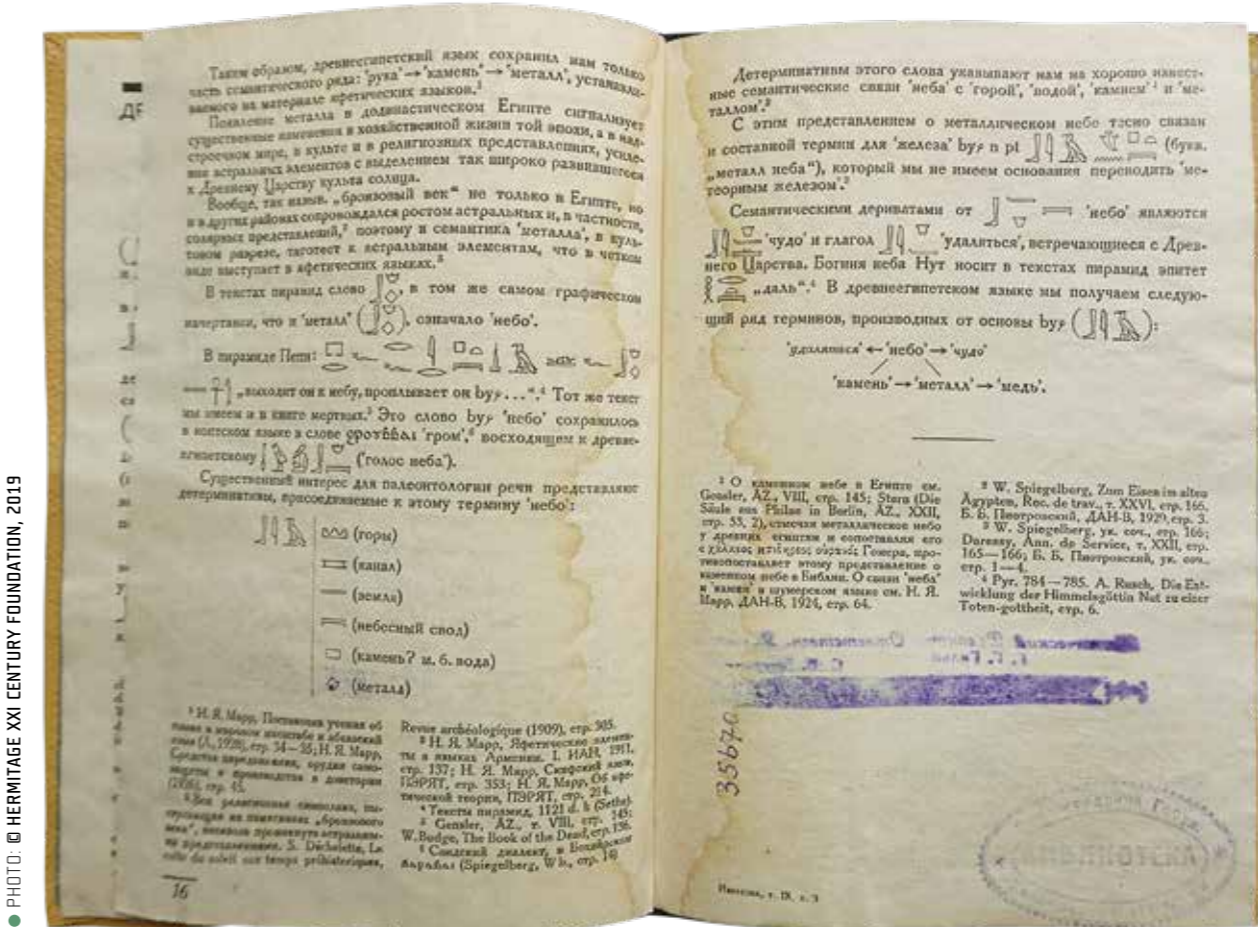 Таким образом, древнеегипетский язык сохранил нам только
часть семантического ряда: 'рука' → 'камень' → 'металл', устанавли-
ваемого на материале яфетических языков.
Появление металла в додинастическом Египте сигнализует
существенные изменения в хозяйственной жизни той эпохи, а в над-
строечном мире, в культе и в религиозных представлениях, усиле-
ние астральных элементов с выделением так широко развившегося
к Древнему Царству культа солнца.
Вообще, так назыв. „бронзовый век“ не только в Египте, но
и в других районах сопровождался ростом астральных и, в частности,
солярных представлений,² поэтому и семантика 'металла', в куль-
товом разрезе, тяготеет к астральным элементам, что в четком
виде выступает в яфетических языках.³
В текстах пирамид слово , в том же самом графическом
начертании, что и 'металл' ( ), означало 'небо'.
В пирамиде Пепи:
„выходит он к небу, проплывает он by...“.⁴ Тот же текст
мы имеем и в книге мертвых.⁵ Это слово 'небо' сохранилось
в коптском языке в слове 'гром',⁶ восходящем к древне-
египетскому ('голос неба').
Существенный интерес для палеонтологии речи представляют
детерминативы, присоединяемые к этому термину 'небо':
(горы)
(канал)
(земля)
(небесный свод)
(камень? м. б. вода)
(металл)
Н. Я. Марр,
(1926), стр. 45.
Revue archéologique (1909), стр. 305.
³ Н. Я. Марр, Яфетические элемен-
ты в языках Армении. I. ИАН, 1911,
стр. 137; Н. Я. Марр, Скифский язык,
ПЭРЯТ, стр. 353; Н. Я. Марр, Об яфе-
тической теории, ПЭРЯТ, стр. 214.
⁴ Тексты пирамид, 1121 (Sethe).
⁵ Gensler, ÄZ., т. VIII, стр. 145;
W. Budge, The Book of the Dead, стр.
(Spiegelberg, Wb., стр.
16
Детерминативы этого слова указывают нам на хорошо извест-
ные семантические связи 'неба' с 'горой', 'водой', 'камнем' и 'ме-
таллом'.²
С этим представлением о металлическом небе тесно связан
и составной термин для 'железа' n pt (букв.
„металл неба“), который мы не имеем основания переводить 'ме-
теорным железом'.³
Семантическими дериватами от 'небо' являются
'чудо' и глагол 'удаляться', встречающиеся с Древ-
него Царства. Богиня неба Нут носит в текстах пирамид эпитет
„даль“.⁴ В древнеегипетском языке мы получаем следую-
щий ряд терминов, производных от основы ( ):
'удаляться' ← 'небо' → 'чудо'
'камень' → 'металл' → 'медь'.
О каменном небе в Египте см.
Gensler, ÄZ., VIII, стр. 145; Stern (Die
Säule aus Philae in Berlin, ÄZ., XXII,
стр. 53, 2), отмечая металлическое небо
у древних египтян и сопоставляя его
с Гомера, про-
тивопоставляет этому представление о
каменном небе в Библии. О связи 'неба'
и 'камня' в шумерском языке см. Н. Я.
Марр, ДАН-В, 1924, стр. 64.
² W. Spiegelberg, Zum Eisen im alten
Ägypten, Rec. de trav., т. XXVI, стр. 166.
Б. Б. Пиотровский, ДАН-В, 1929, стр. 3.
³ W. Spiegelberg, ук. соч., стр. 166;
Daressy, Ann. de Service, т. XXII, стр.
165—166; Б. Б. Пиотровский, ук. соч.,
стр. 1—4.
⁴ Pyr. 784—785. A. Rusch, Die Ent-
wicklung der Himmelsgöttin Nut zu einer
Toten-gottheit, стр. 6.
35670
PHOTO: © HERMITAGE XXI CENTURY FOUNDATION, 2019